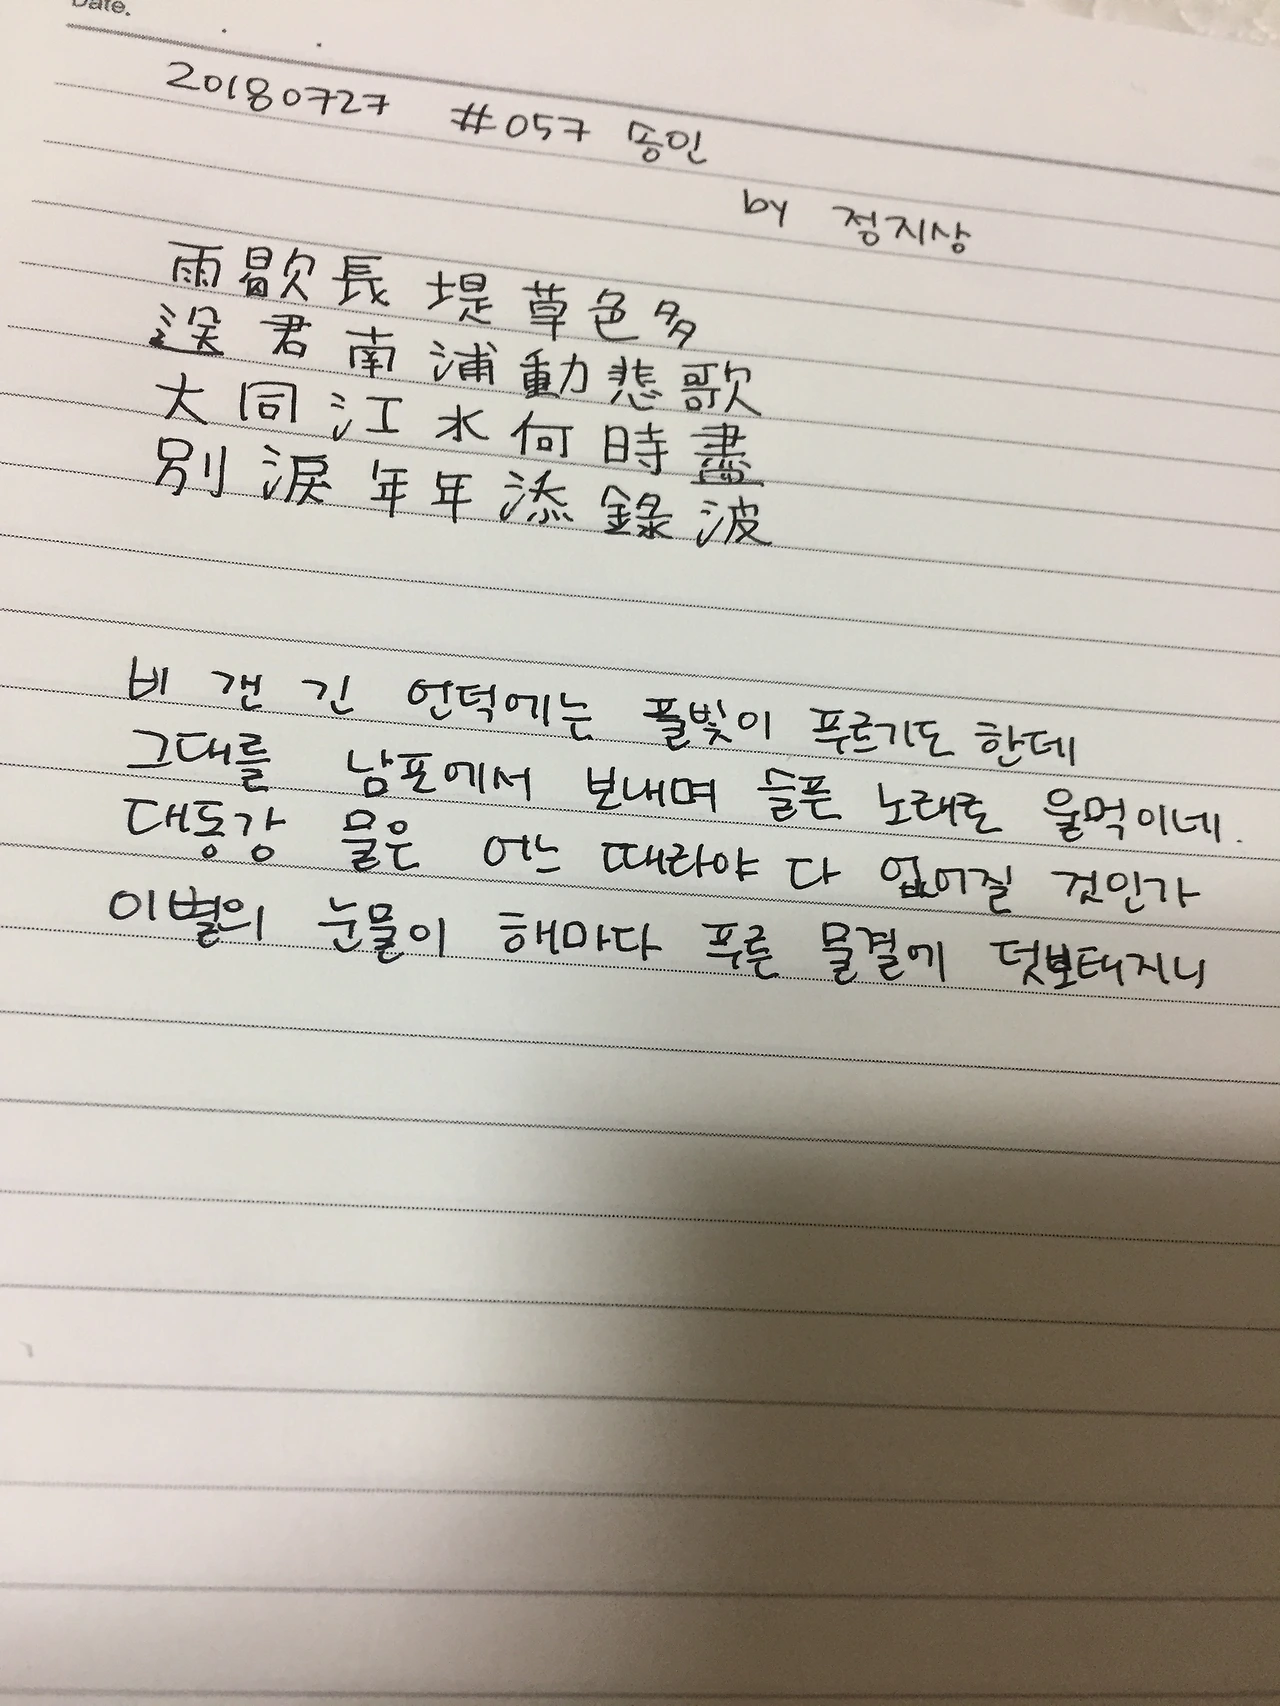 Date.
20180727 #057 송인
by 정지상
雨歇長堤草色多
送君南浦動悲歌
大同江水何時盡
別淚年年添錄波
비 갠 긴 언덕에는 풀빛이 푸르기도 한데
그대를 남포에서 보내며 슬픈 노래로 울먹이네.
대동강 물은 어느 때라야 다 없어질 것인가
이별의 눈물이 해마다 푸른 물결에 덧보태지니